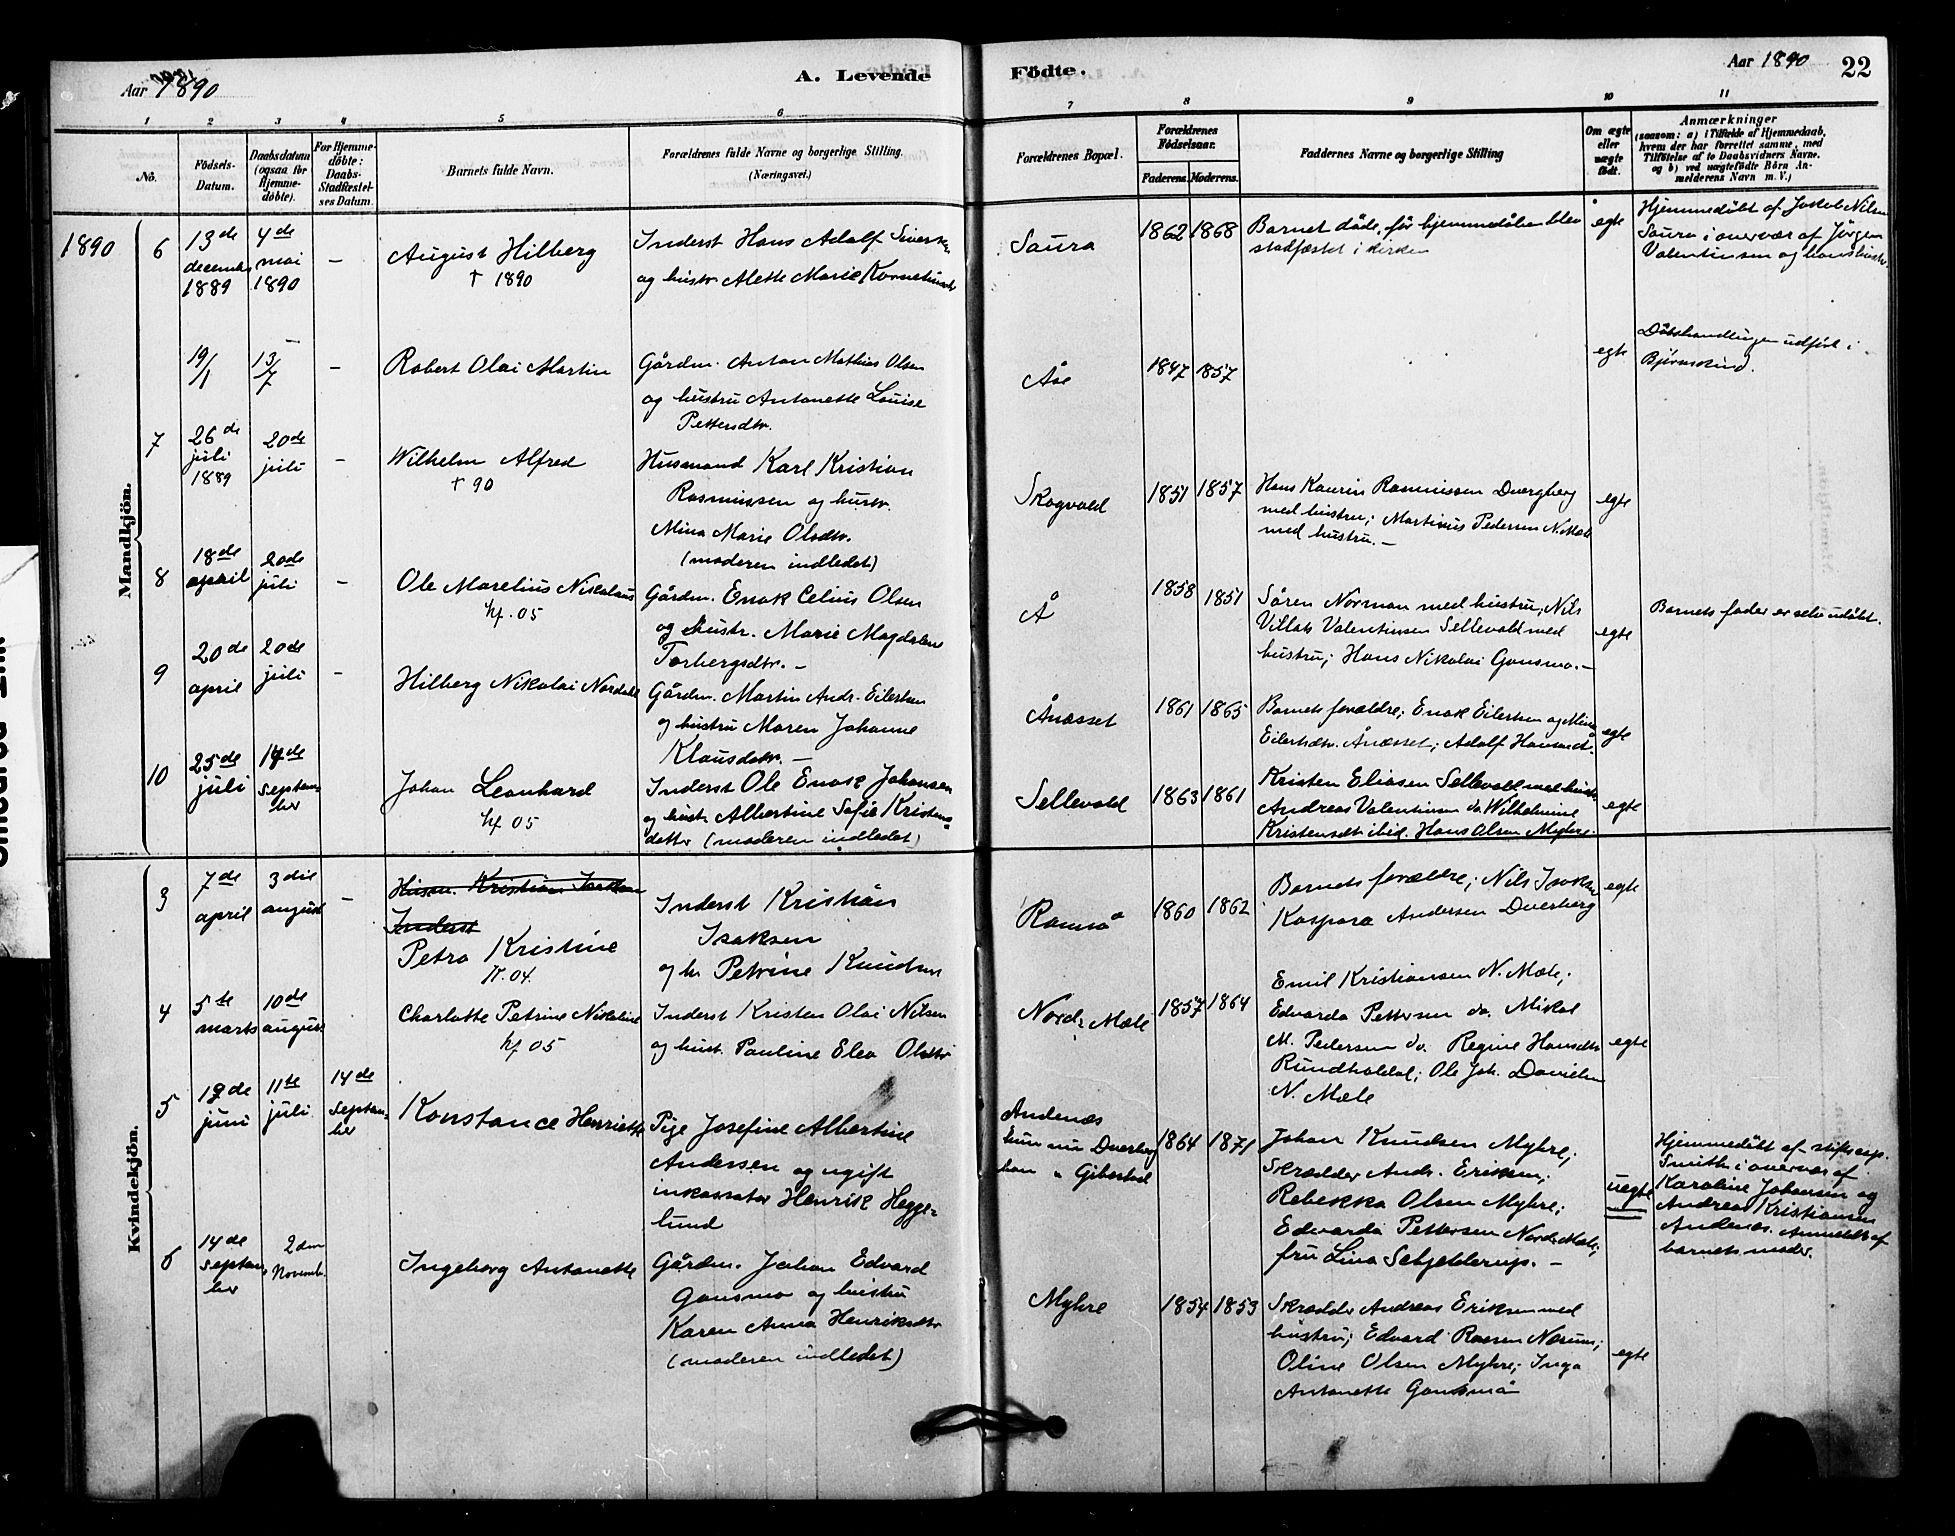 Aar 1890
A. Levende
1 2 3 4 5 6
Nô.
Födsels-
Datum.
Daabsdatum
(ogsaa for
Hjemme-
döbte).
For Hjemme-
döbte:
Daabs-
Stadfæstel-
ses Datum.
Barnets fulde Navn.
Forældrenes fulde Navne og borgerlige Stilling.
(Næringsvei.)
Mandkjön.
1890 6
13de
decembr
1889
4de
mai
1890
—
August Hilberg
† 1890
Inderst Hans Adolf
og hustr. Alette Marie
19/1
13/7
—
Robert Olai Martin
Gårdm. Anton Mathias Olsen
og hustru Antonette Louise
Pettersdtr.
7
26de
juli
1889
20de
juli
—
Wilhelm Alfred
† 90
Husmand Karl Kristian
Rasmussen og hustr.
Mina Marie Olsdtr.
(moderen indledet)
8
18de
april
20de
juli
—
Ole Marelius Nikolaus
kf. 05
Gårdm. Enok Celius Olsen
og hustr. Marie Magdalene
Torbergsdtr. —
9
20de
april
20de
juli
—
Hilberg Nikolai Nordahl
Gårdm. Martin Andr. Eilertsen
og hustru Maren Johanne
Klausdatr. —
10
25de
juli
14de
septem-
ber
Johan Leonhard
kf 05
Inderst Ole Enok Johansen
og hustr. Albertine Sofie Kristens-
datter (moderen indledet)
Kvindekjön.
3
7de
april
3die
august
—
Husm. Kristian Isaksen
Inderst
Petra Kristine
Inderst Kristian
Isaksen
og h. Petrine Knudsen
4
5te
marts
10de
august
Charlotte Petrine Nikoline
kf 05
Inderst Kristen Olai Nilsen
og hust. Pauline Elea Olsdtr
5
juni
11te
juli
14de
septem-
ber
Konstance Henriette
Pige Josefine Albertine
Andersen og ugift
inkassator Henrik Hegge-
lund
6
14de
septem-
ber
2den
Novemb.
Ingeborg Antonette
Gårdm. Johan Edvard
Gansmo og hustru
Karen Anna Henriksdtr
(moderen indledet)
Födte.
Aar 1890 22
7 8 9 10 11
Forældrenes Bopæl.
Forældrenes
Födselsaar.
Faderens. Moderens.
Faddernes Navne og borgerlige Stilling
Om ægte
eller
uægte
födt.
Anmærkninger
(saasom: a) i Tilfælde af Hjemmedaab,
hvem der har forrettet samme, med
Tilföielse af to Daabsvidners Navne,
og b) ved uægtefödte Börn An-
melderens Navn m. V.)
Saura
1862 1868
Barnet døde, før hjemmedåben blev
stadfæstet i kirken
egte
Hjemmedøbt af Jakob Nilsen
Saura i overvær af Jørgen
Valentinsen og hans hustr.
Åse
1847 1857
egte
Dåbshandlingen udført i
Bjørnskind.
Skogvold
1851 1857
Hans Kaurin Rasmussen Dverberg
med hustru; Martinus Pedersen N. Mæle
med hustru. —
egte
Å
1858 1851
Søren Norman med hustru; Nils
Valentinsen Sellevold med
hustru; Hans Nikolai Gansmo. —
egte
Barnets fader er selv udøbt.
Ånæsset
1861 1865
Barnets forældre; Enok Eilertsen og Mina
Eilertsdtr. Ånæsset; Adolf
egte
Sellevold
1863 1861
Kristen Eliasen Sellevold med hustr.
Andreas Valentinsen do Wilhelmine
Kristensdtr ibid. Hans Olsen Myhre.
egte
Ramså
1860 1862
Barnets forældre; Nils Isaksen
Kaspara Andersen Dverberg
egte
Nordr Mæle
1857 1864
Emil Kristiansen N. Mæle;
Edvarda Pettersen do. Mikal
M. Pedersen do. Regine Hansdtr
Rundholdal; Ole Joh. Davidsen
N. Mæle
egte
Andenæs
hun nu Dverberg
han " Gibostad
1864 1871
Johan Knudsen Myhre;
Skrædder Andr. Eriksen;
Rebekka Olsen Myhre;
Edvarda Pettersen Nordr. Mæle;
fru Lina Schjelderup. —
uegte
Hjemmedøbt af stiftscap.
Smith i overvær af
Karoline Johansen og
Andreas Kristiansen
Andenæs. Anmeldt af
barnets moder.
Myhre
1854 1853
Skrædder Andreas Eriksen med
hustru; Edvard Næsum;
Oline Olsen Myhre; Inga
Antonette Gansmo
egte